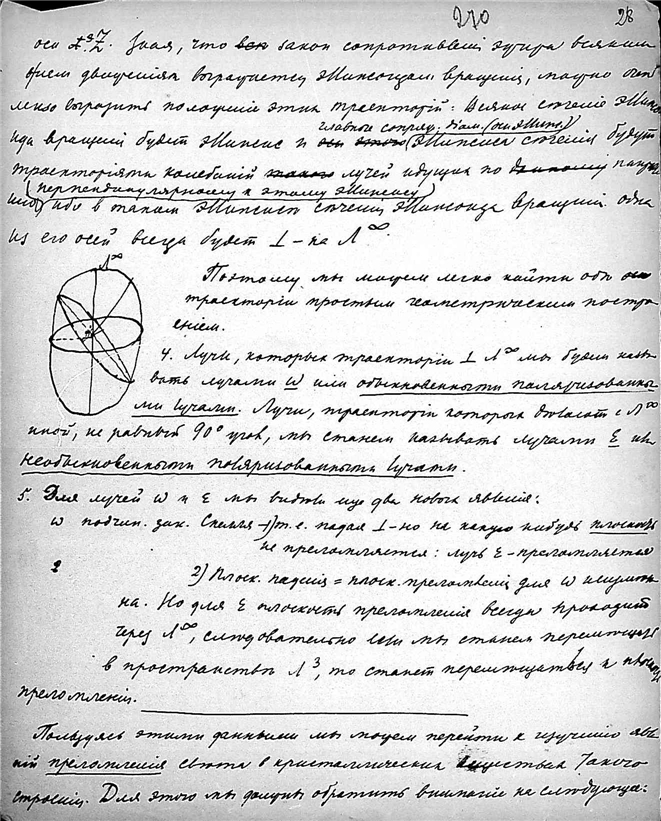 270 28
оси Λ³/Z. Зная, что законъ сопротивленія эѳира всякимъ
движеніямъ выражается Эллипсоидомъ вращенія, можно очень
легко выразить положеніе этихъ траекторій: Всякое сѣченіе Эллипсо-
главные сопряж. діам. (оси Эллипс.)
ида вращенія будетъ Эллипсъ и Эллипса сѣченія будутъ
траекторіями колебаній лучей идущихъ по
(перпендикулярному къ этому Эллипсису)
ибо въ такомъ Эллипсисѣ сѣченія Эллипсоида вращенія одна
изъ его осей всегда будетъ ⊥-на Λ∞.
Λ∞
Поэтому мы можемъ легко найти обѣ
траекторіи простымъ геометрическимъ постро-
еніемъ.
4. Лучи, которыхъ траекторіи ⊥ Λ∞ мы будемъ назы-
вать лучами ω или обыкновенными поляризованны-
ми лучами. Лучи, траекторіи которыхъ дѣлаютъ с Λ∞
иной, не равный 90° уголъ, мы станемъ называть лучами ε или
необыкновенными поляризованными лучами.
5. Для лучей ω и ε мы видѣли еще два новыхъ явленія:
ω подчин. зак. Снеллія -1) т.е. падая ⊥-но на какую нибудь плоскость
не преломляется: лучъ ε - преломляется
2) Плоск. паденія = плоск. преломленія для ω
на. Но для ε плоскость преломленія всегда проходитъ
черезъ Λ∞, слѣдовательно если мы станемъ перемѣщать
въ пространствѣ Λ³, то станетъ перемѣщаться и плоск.
преломленія.
Пользуясь этими данными мы можемъ перейти къ изученію явле-
ній преломленія свѣта въ кристаллическихъ веществахъ такого
строенія. Для этого мы должны обратить вниманіе на слѣдующее: